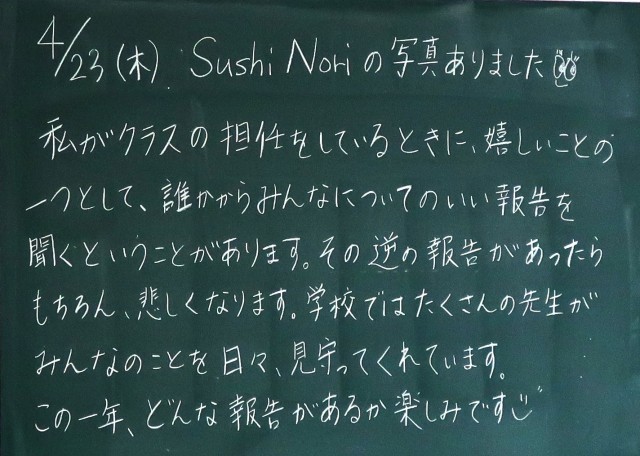 4/23(木). Sushi Noriの写真ありました
私がクラスの担任をしているときに、嬉しいことの
一つとして、誰かからみんなについてのいい報告を
聞くということがあります。その逆の報告があったら
もちろん、悲しくなります。学校ではたくさんの先生が
みんなのことを日々、見守ってくれています。
この一年、どんな報告があるか楽しみです